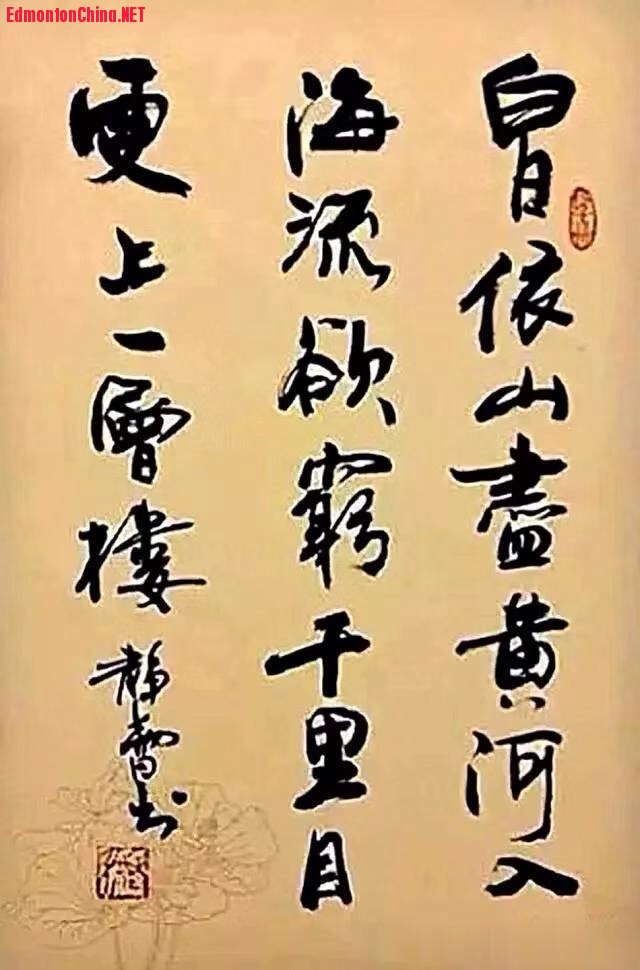 EdmontonChina.NET
白日依山盡黄河入
海流欲窮千里目
更上一層樓
書